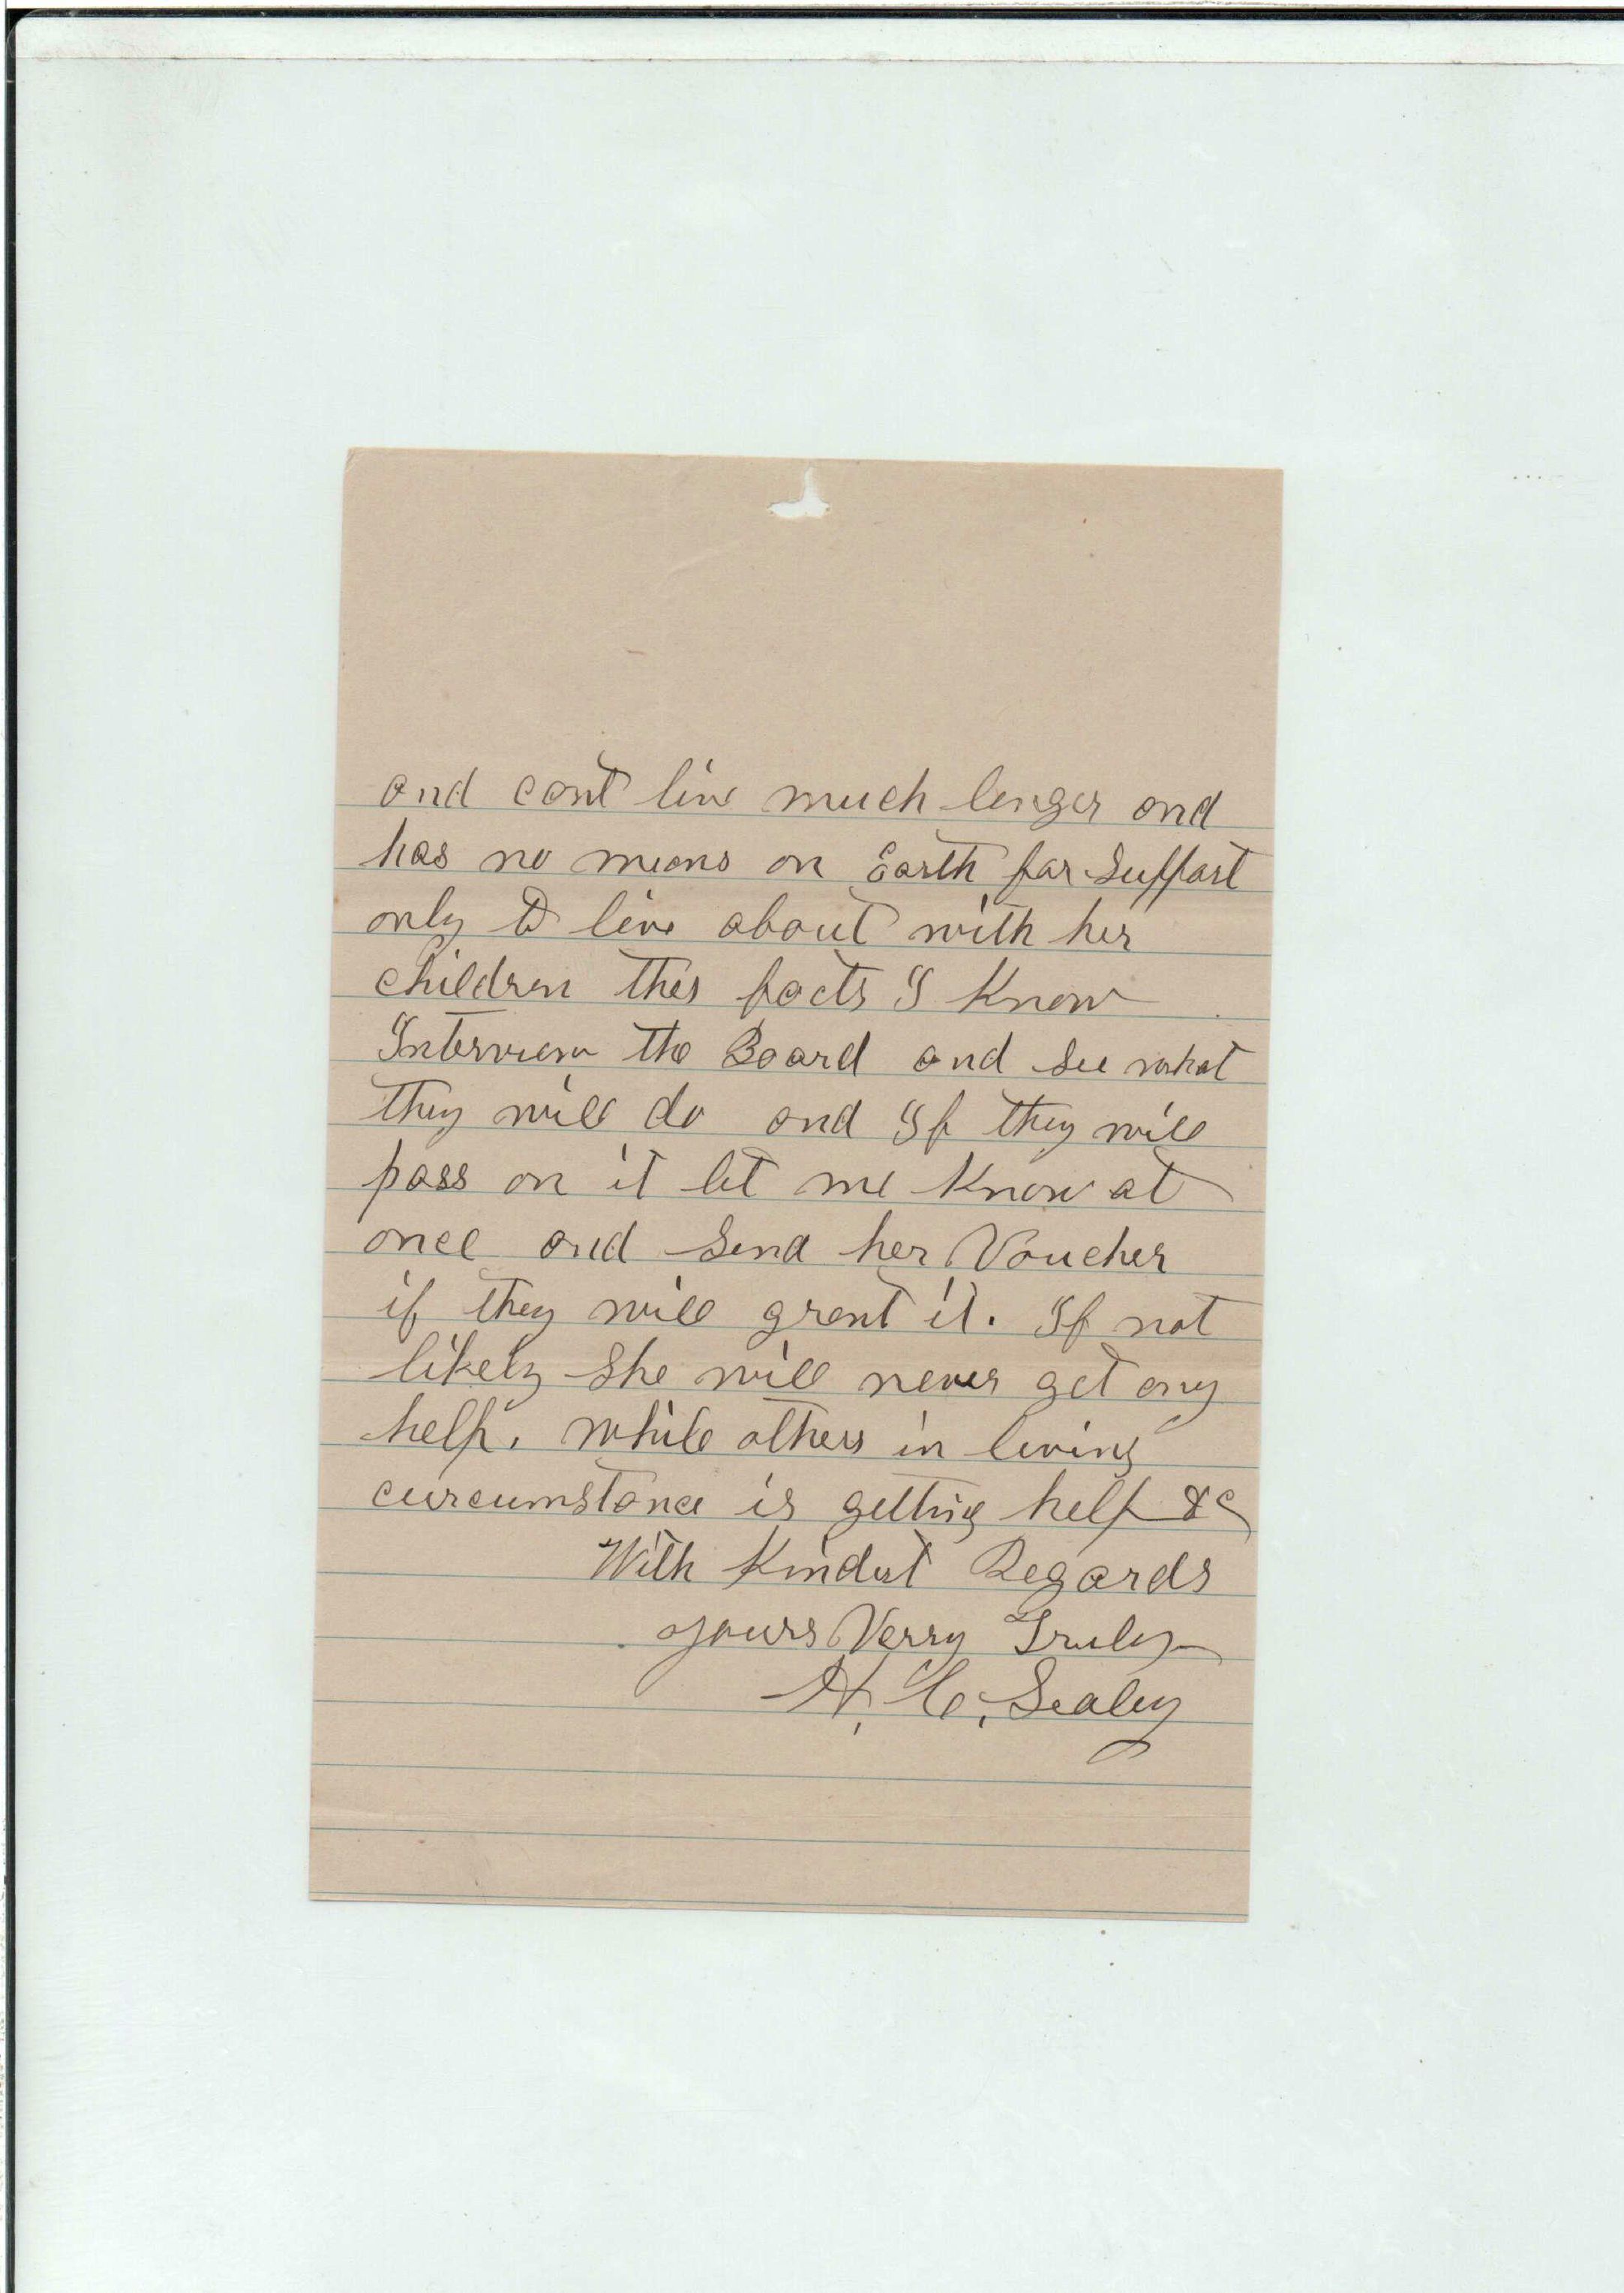 and cant live much longer and
has no means on Earth for Support
only to live about with her
children this facts I Know
Interview the Board and see what
they will do and If they will
pass on it let me Know at
once and Send her Voucher
if they will grant it. If not
likely She will never get any
help. While others in living
circumstance is getting help &c
With Kindest Regards
yours Verry Truly
H. C. Sealey